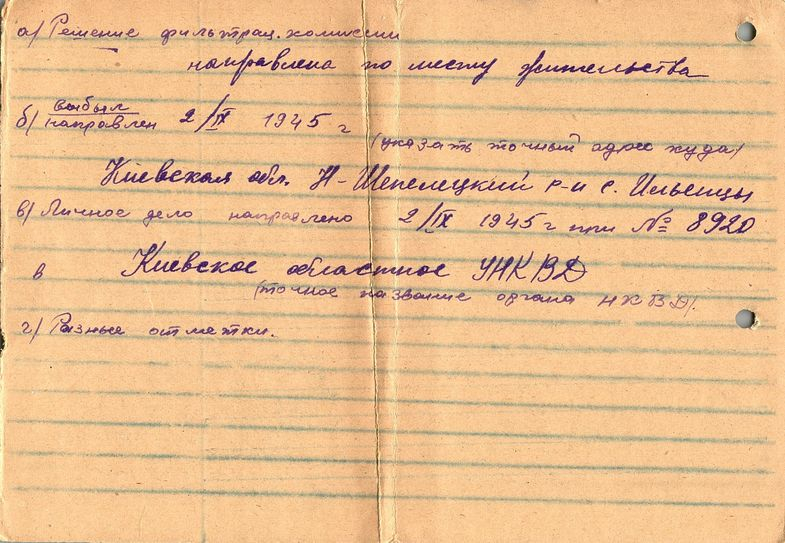 а) Решение фильтрац. комиссии
направлена по месту жительства
выбыл
б) направлен 2/IX 1945 г
(указать точный адрес куда)
Киевская обл. Н-Шепелецкий р-н с. Ильенцы
в) Личное дело направлено 2/IX 1945 г при № 8920
в Киевское областное УНКВД
(точное название органа НКВД).
г) Разные отметки.